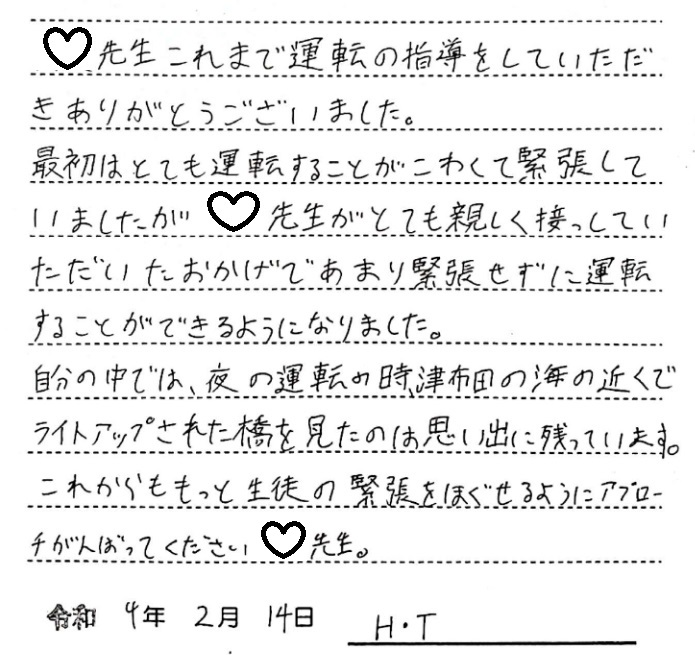 ♡先生これまで運転の指導をしていただ
きありがとうございました。
最初はとても運転することがこわくて緊張して
いましたが♡先生がとても親しく接っしてい
ただいたおかげであまり緊張せずに運転
することができるようになりました。
自分の中では、夜の運転の時、津布田の海の近くで
ライトアップされた橋を見たのは思い出に残っています。
これからももっと生徒の緊張をほぐせるようにアプロー
チがんばってください♡先生。
令和 4年 2月 14日 H・T